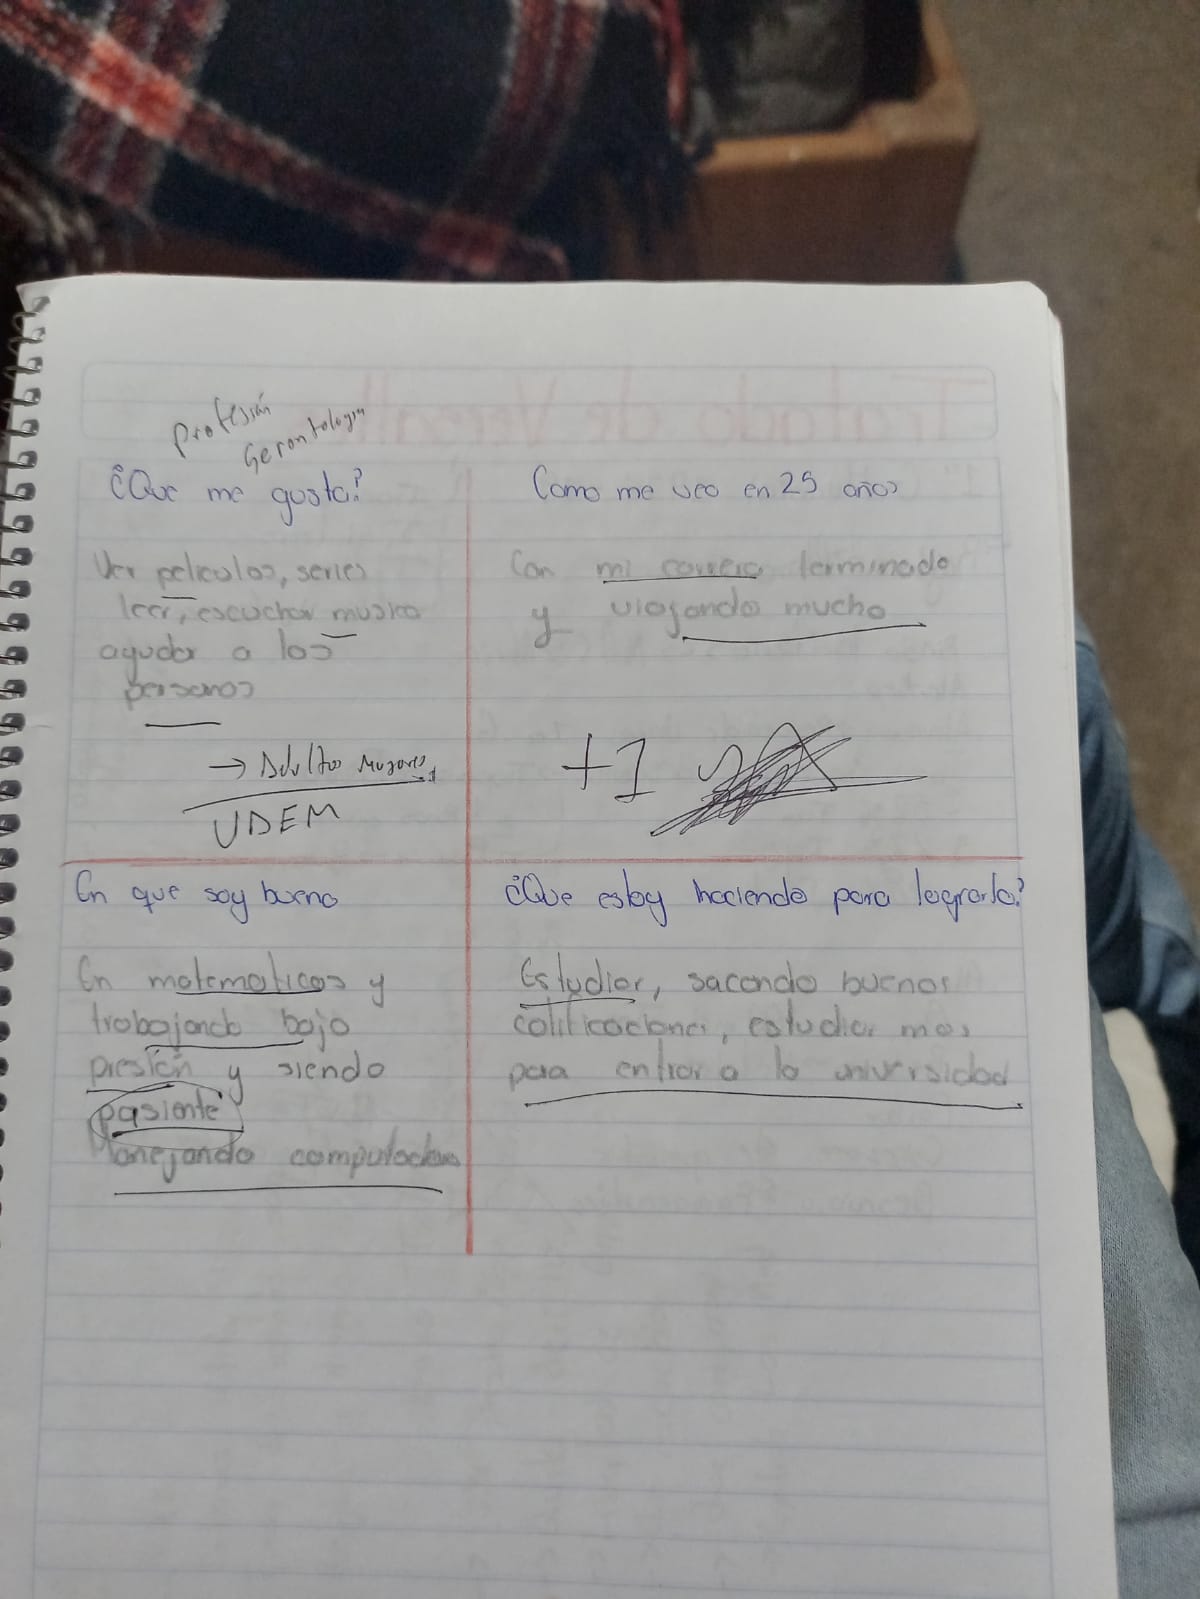 Profesión
Gerontologia
¿Que me gusta?
Ver peliculas, series
leer, escuchar musica
ayudar a las
personas
→ Adultos Mayores
UDEM
Como me veo en 25 años
Con mi carrera terminada
y viajando mucho
+1
En que soy bueno
En matematicas y
trabajando bajo
presión y siendo
pasiente
Manejando computadora
¿Que estoy haciendo para lograrlo?
Estudiar, sacando buenas
calificaciones, estudiar mas
para entrar a la universidad
Tratado de Versalles